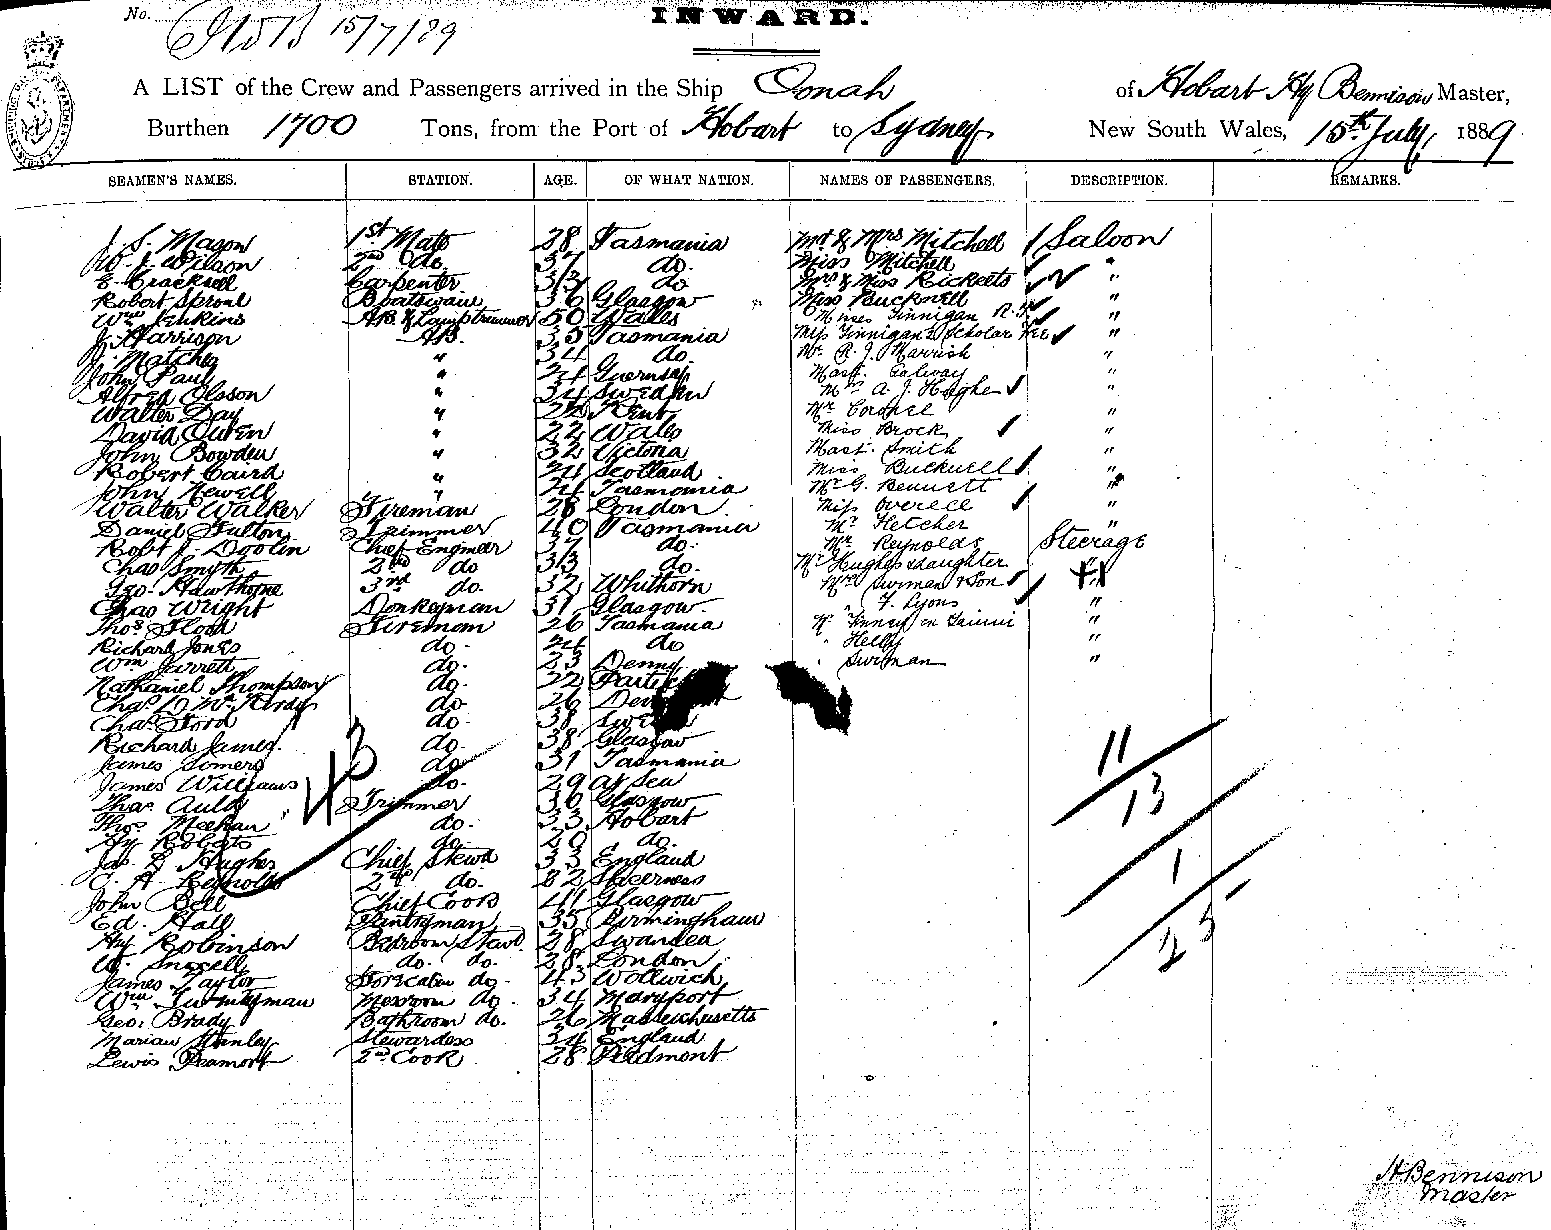 No. 15/7/89
INWARD.
A LIST of the Crew and Passengers arrived in the Ship Oonah of Hobart Hy Bennison Master,
Burthen 1700 Tons, from the Port of Hobart to Sydney New South Wales, 15th July, 1889
SEAMEN'S NAMES. STATION. AGE. OF WHAT NATION. NAMES OF PASSENGERS. DESCRIPTION. REMARKS.
J. S. Mason 1st Mate 28 Tasmania Mr & Mrs Mitchell Saloon
W. J. Wilson 2nd do 37 do. Miss Mitchell "
E. Cracknell Carpenter 33 do Mrs & Miss Ricketts "
Robert Sproul Boatswain 36 Glasgow Miss Bucknell "
Wm Jenkins AB. & Lamptrimmer 50 Wales Misses Finnigan "
J. Harrison AB. 35 Tasmania Miss Finnigan's Scholar "
J. Matches " 34 do. Mr. R. J. Marrish "
John Paul " 24 Guernsey Mast. Galway "
Alfred Olsson " 34 Sweden Mrs A. J. Hughes "
Walter Day " 22 Kent Mr Coronel "
David Owen " 22 Wales Miss Brock "
John Bowden " 32 Victoria Mast. Smith "
Robert Caird " 24 Scotland Miss Bucknell "
John Newell " 24 Tasmania Mr G. Bennett "
Walter Walker Fireman 28 London Miss Overell "
Daniel Fulton Trimmer 40 Tasmania Mr Fletcher "
Robt J. Doolin Chief Engineer 37 do. Mr Reynolds Steerage
Chas Smyth 2nd do 33 do. Mr Hughes daughter "
Geo. Hawthorne 3rd do. 32 Whithorn Mrs Surman & Son
Chas Wright Donkeyman 31 Glasgow. " F. Lyons "
Thos Flood Fireman 26 Tasmania "
Richard Jones do. 24 do " Helly "
Wm Jarrett do. 23 Denny " Surman "
Nathaniel Thompson do. 22
Chas D. McKirdy do 26
Chas Ford do. 38
Richard James. do. 38 Glasgow 11
James Somers do 31 Tasmania
James Williams do. 29 at Sea 13
Thos Auld Trimmer 36 Glasgow
Thos Meehan do. 33 Hobart
Hy Roberts do. 20 do.
Jas. L. Hughes Chief Stewd 33 England 1
C. A. Reynolds 2nd do. 32 Sheerness
John Bell Chief Cook 41 Glasgow
Ed. Hall Pantryman 35 Birmingham 25
Hy Robinson Bedroom Stewd. 28 Swansea
W. Snozell do. do. 28 London
James Taylor Forecabin do. 43 Woolwich
Wm Twentyman Messroom do. 34 Maryport
Geo. Brady Bathroom do. 26 Massachusetts
Marian Stanley Stewardess 34 England
Lewis Peamont 2nd Cook 28 Piedmont
43
H Bennison
Master